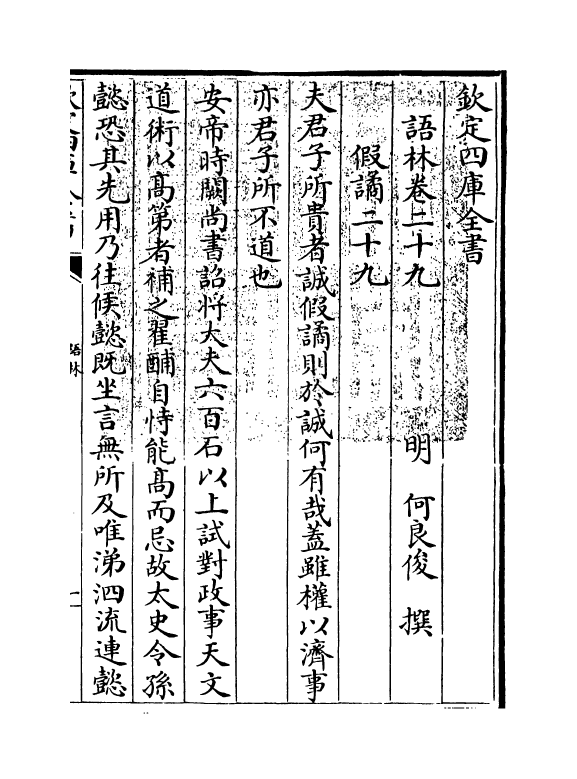 欽定四庫全書
語林卷二十九 明 何良俊 撰
假譎二十九
夫君子所貴者誠假譎則於誠何有哉蓋雖權以濟事
亦君子所不道也
安帝時闕尚書詔將大夫六百石以上試對政事天文
道術以髙第者補之翟酺自恃能髙而忌故太史令孫
懿恐其先用乃往候懿既坐言無所及唯涕泗流連懿
語林